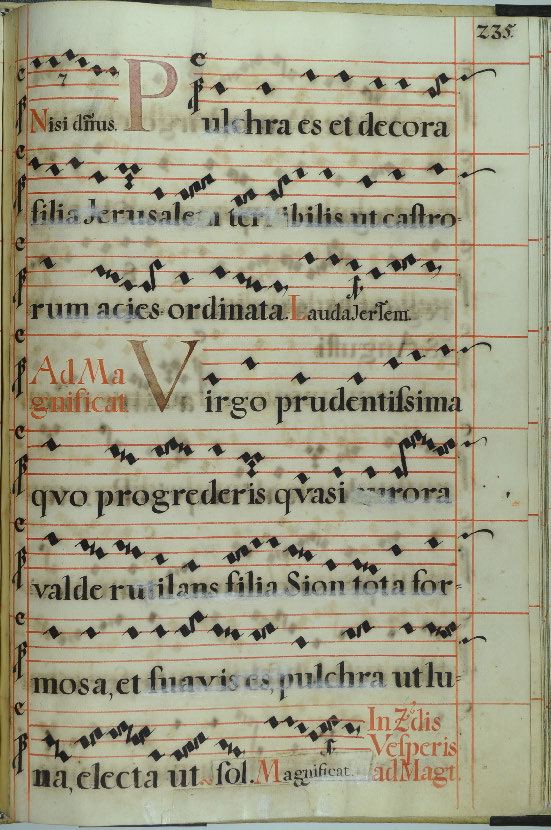 235.
7
Nisi dñus. Pulchra es et decora
filia Jerusalem terribilis ut castro-
rum acies ordinata. Lauda Jerlem.
Ad Ma
gnificat Virgo prudentissima
qvo progrederis qvasi aurora
valde rutilans filia Sion tota for-
mosa, et suavis es, pulchra ut lu-
na, electa ut sol. Magnificat.
In 2dis
Vesperis
ad Magt.